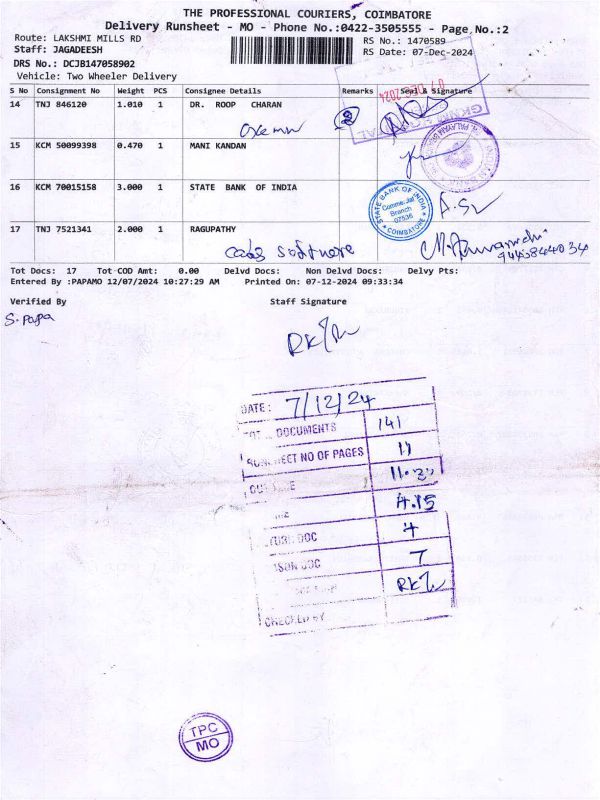 THE PROFESSIONAL COURIERS, COIMBATORE
Delivery Runsheet - MO - Phone No.:0422-3505555 - Page No.:2
Route: LAKSHMI MILLS RD
RS No.: 1470589
Staff: JAGADEESH
RS Date: 07-Dec-2024
DRS No.: DCJB147058902
Vehicle: Two Wheeler Delivery
S No Consignment No Weight PCS Consignee Details Remarks Seal & Signature
14 TNJ 846120 1.010 1 DR. ROOP CHARAN
2
07 DEC 2024
15 KCM 50099398 0.470 1 MANI KANDAN
16 KCM 70015158 3.000 1 STATE BANK OF INDIA
STATE BANK OF INDIA
Branch
07536
COIMBATORE
17 TNJ 7521341 2.000 1 RAGUPATHY
cads software
Tot Docs: 17 Tot COD Amt: 0.00 Delvd Docs: Non Delvd Docs: Delvy Pts:
Entered By :PAPAMO 12/07/2024 10:27:29 AM Printed On: 07-12-2024 09:33:34
Verified By Staff Signature
S. Papa
DATE: 7/12/24
DOCUMENTS 141
NO OF PAGES 11
4.15
DOC 4
DOC 7
CHECKED BY
TPC
MO